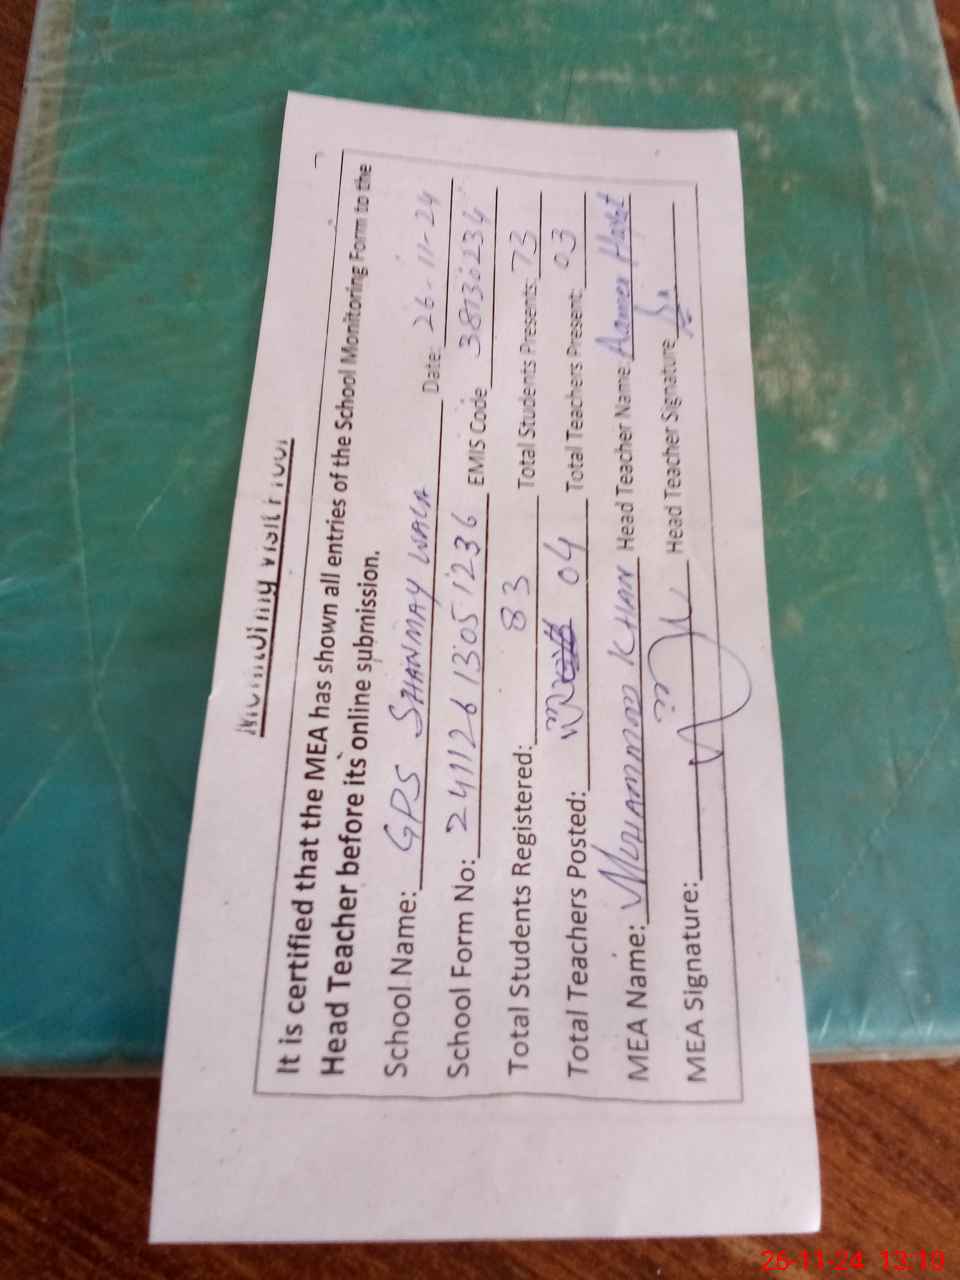 Monitoring Visit Proof
It is certified that the MEA has shown all entries of the School Monitoring Form to the
Head Teacher before its online submission.
School Name: GPS SHANMAY WALA Date: 26-11-24
School Form No: 24112613051236 EMIS Code 38130234
Total Students Registered: 83 Total Students Presents: 73
Total Teachers Posted: 04 Total Teachers Present: 03
MEA Name: MUHAMMAD KHAN Head Teacher Name: Aamer
MEA Signature: Head Teacher Signature
26-11-24 13:10